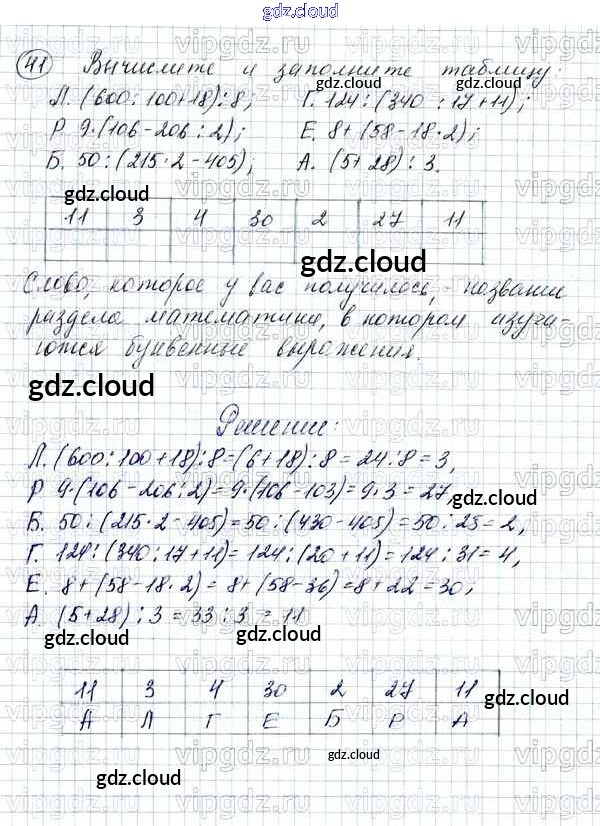 gdz.cloud
41 Вычислите и заполните таблицу:
Л. (600 : 100 + 18) : 8; Г. 124 : (340 : 17 + 11);
Р 9 · (106 - 206 : 2); Е. 8 + (58 - 18 · 2);
Б. 50 : (215 · 2 - 405); А. (5 + 28) : 3.
11 3 4 30 2 27 11
Слово, которое у вас получилось, - название
раздела математики, в котором изуча-
ются буквенные выражения.
Решение:
Л. (600 : 100 + 18) : 8 = (6 + 18) : 8 = 24 : 8 = 3,
Р 9 · (106 - 206 : 2) = 9 · (106 - 103) = 9 · 3 = 27,
Б. 50 : (215 · 2 - 405) = 50 : (430 - 405) = 50 : 25 = 2,
Г. 124 : (340 : 17 + 11) = 124 : (20 + 11) = 124 : 31 = 4,
Е. 8 + (58 - 18 · 2) = 8 + (58 - 36) = 8 + 22 = 30;
А. (5 + 28) : 3 = 33 : 3 = 11
11 3 4 30 2 27 11
А Л Г Е Б Р А
gdz.cloud